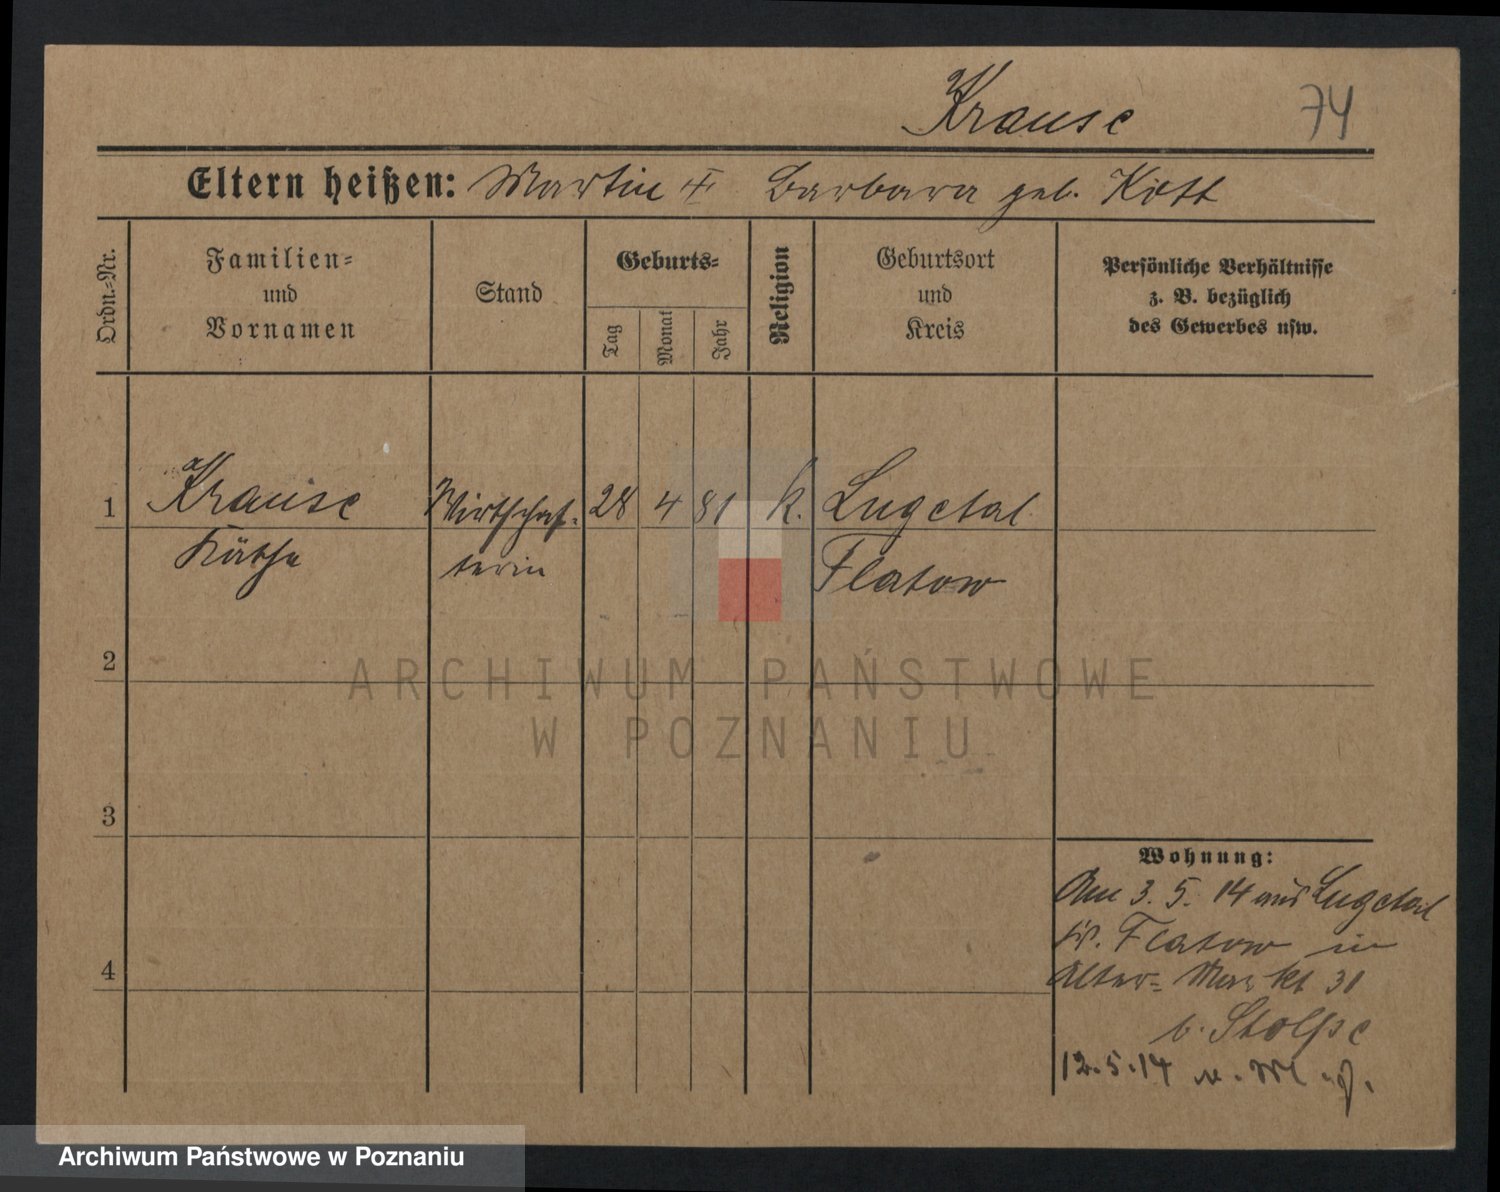 Krause 74
Eltern heißen: Martin ‡ Barbara geb. Kott
Ordn.-Nr.
Familien-
und
Vornamen
Stand
Geburts-
Tag
Monat
Jahr
Religion
Geburtsort
und
Kreis
Persönliche Verhältnisse
z. B. bezüglich
des Gewerbes usw.
1 Krause Wirtschaf- 28 4 81 k. Lugetal
Käthe terin Flatow
2
3
4
Wohnung:
Am 3. 5. 14 aus Lugetal
Kr. Flatow in
Alter-Markt 31
b. Stolpe
12.5.14 n.
ARCHIWUM PAŃSTWOWE
W POZNANIU
Archiwum Państwowe w Poznaniu